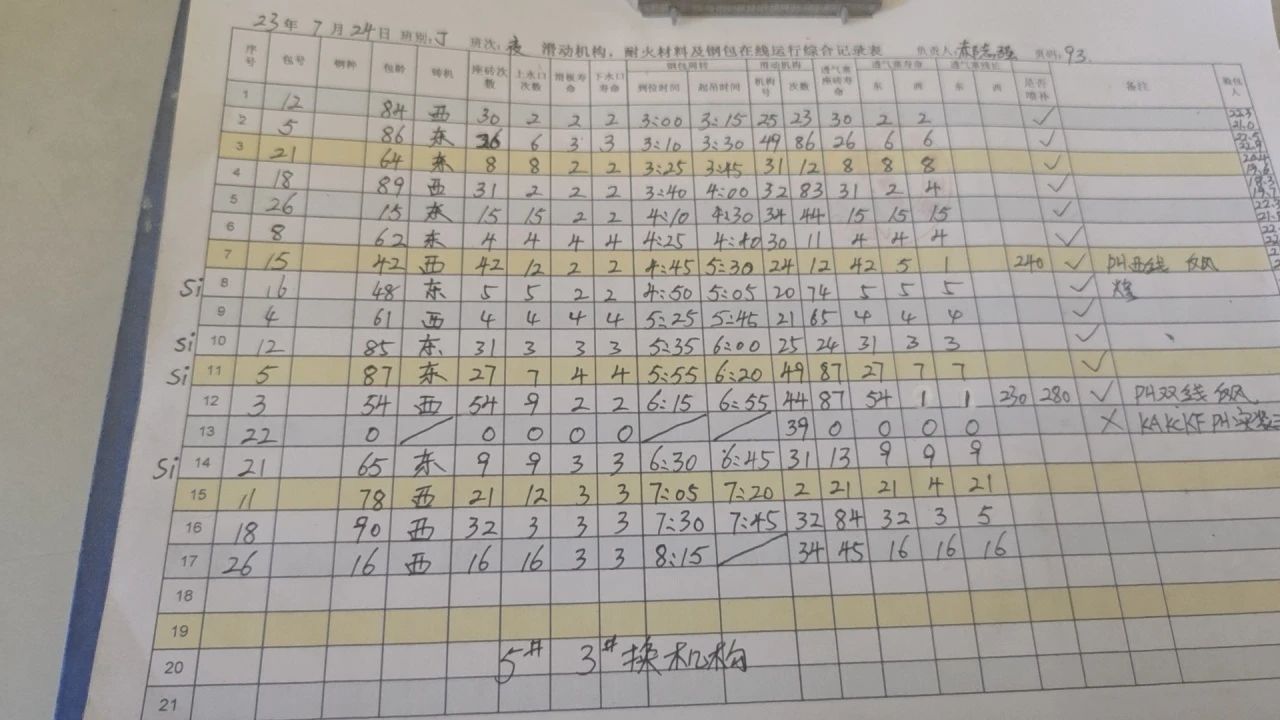 23年 7月 24日 班别:丁 班次:夜 滑动机构、耐火材料及钢包在线运行综合记录表 负责人: 页码:93.
序号 包号 钢种 包龄 铸机 座砖次数 上水口次数 滑板寿命 下水口寿命 钢包周转 到位时间 起吊时间 滑动机构 机构号 次数 透气塞座砖寿命 透气塞寿命 东 西 透气塞残长 东 西 是否喷补 备注
1 12 84 西 30 2 2 2 3:00 3:15 25 23 30 2 2 ✓ 22.3
2 5 86 东 26 6 3 3 3:10 3:30 49 86 26 6 6 ✓
3 21 64 东 8 8 2 2 3:25 3:45 31 12 8 8 8 ✓
4 18 89 西 31 2 2 2 3:40 4:00 32 83 31 2 4 ✓
5 26 15 东 15 15 2 2 4:10 4:30 34 44 15 15 15 ✓
6 8 62 东 4 4 4 4 4:25 4:40 30 11 4 4 4 ✓
7 15 42 西 42 12 2 2 4:45 5:30 24 12 42 5 1 240 ✓
Si 8 16 48 东 5 5 2 2 4:50 5:05 20 74 5 5 5 ✓
9 4 61 西 4 4 4 4 5:25 5:45 21 65 4 4 4 ✓
Si 10 12 85 东 31 3 3 3 5:35 6:00 25 24 31 3 3 ✓
Si 11 5 87 东 27 7 4 4 5:55 6:20 49 87 27 7 7 ✓
12 3 54 西 54 9 2 2 6:15 6:55 44 87 54 1 1 230 280 ✓
13 22 0 0 0 0 0 39 0 0 0 0 ✗
Si 14 21 65 东 9 9 3 3 6:30 6:45 31 13 9 9 9
15 11 78 西 21 12 3 3 7:05 7:20 2 21 21 4 21
16 18 90 西 32 3 3 3 7:30 7:45 32 84 32 3 5
17 26 16 西 16 16 3 3 8:15 34 45 16 16 16
18
19
20 5# 3#换机构
21